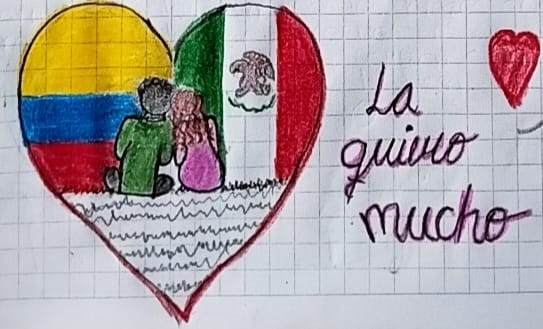 La
quiero
mucho